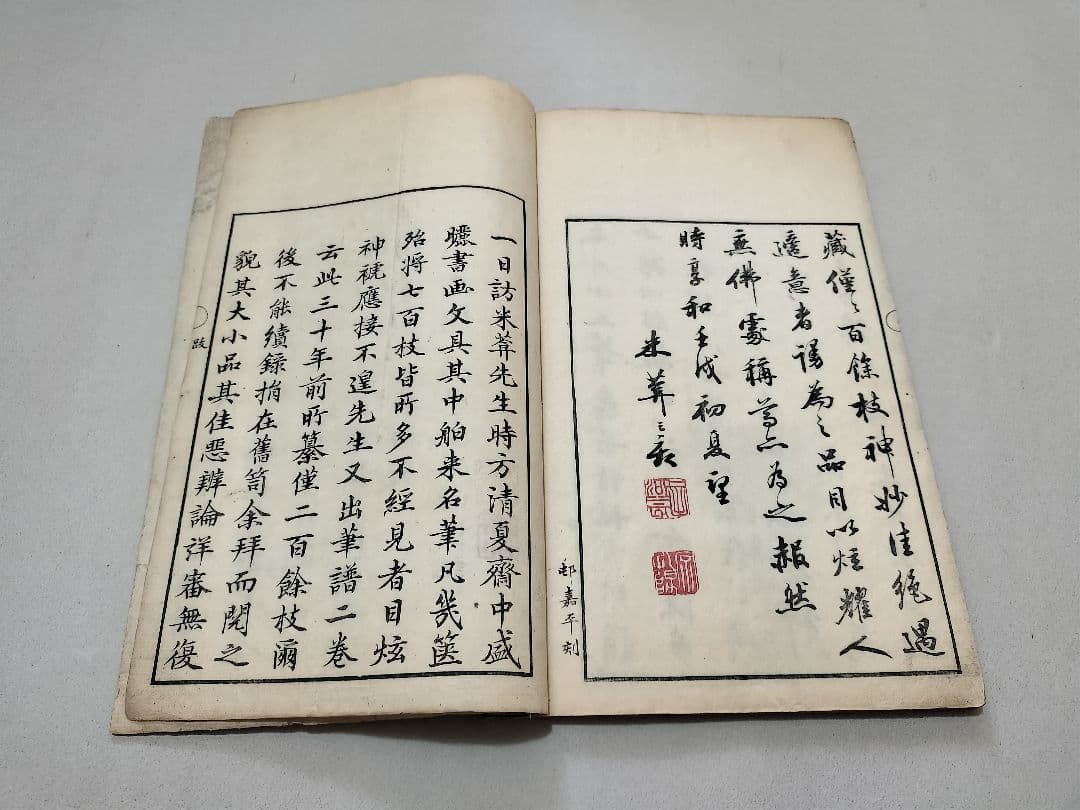 藏僅〻百餘枝神妙佳絶遇
適意者謾為之品目以炫耀人
無佛處稱尊亦為之赧然
時享和壬戌初夏望
米葊三亥
邨嘉平刻
一日訪米葊先生時方清夏齋中盛
曝書画文具其中舶来名筆凡幾篋
殆將七百枝皆所多不經見者目炫
神褫應接不遑先生又出筆譜二卷
云此三十年前所纂僅二百餘枝爾
後不能續錄捎在舊笥余拜而閲之
貌其大小品其佳惡辨論詳審無復
跋